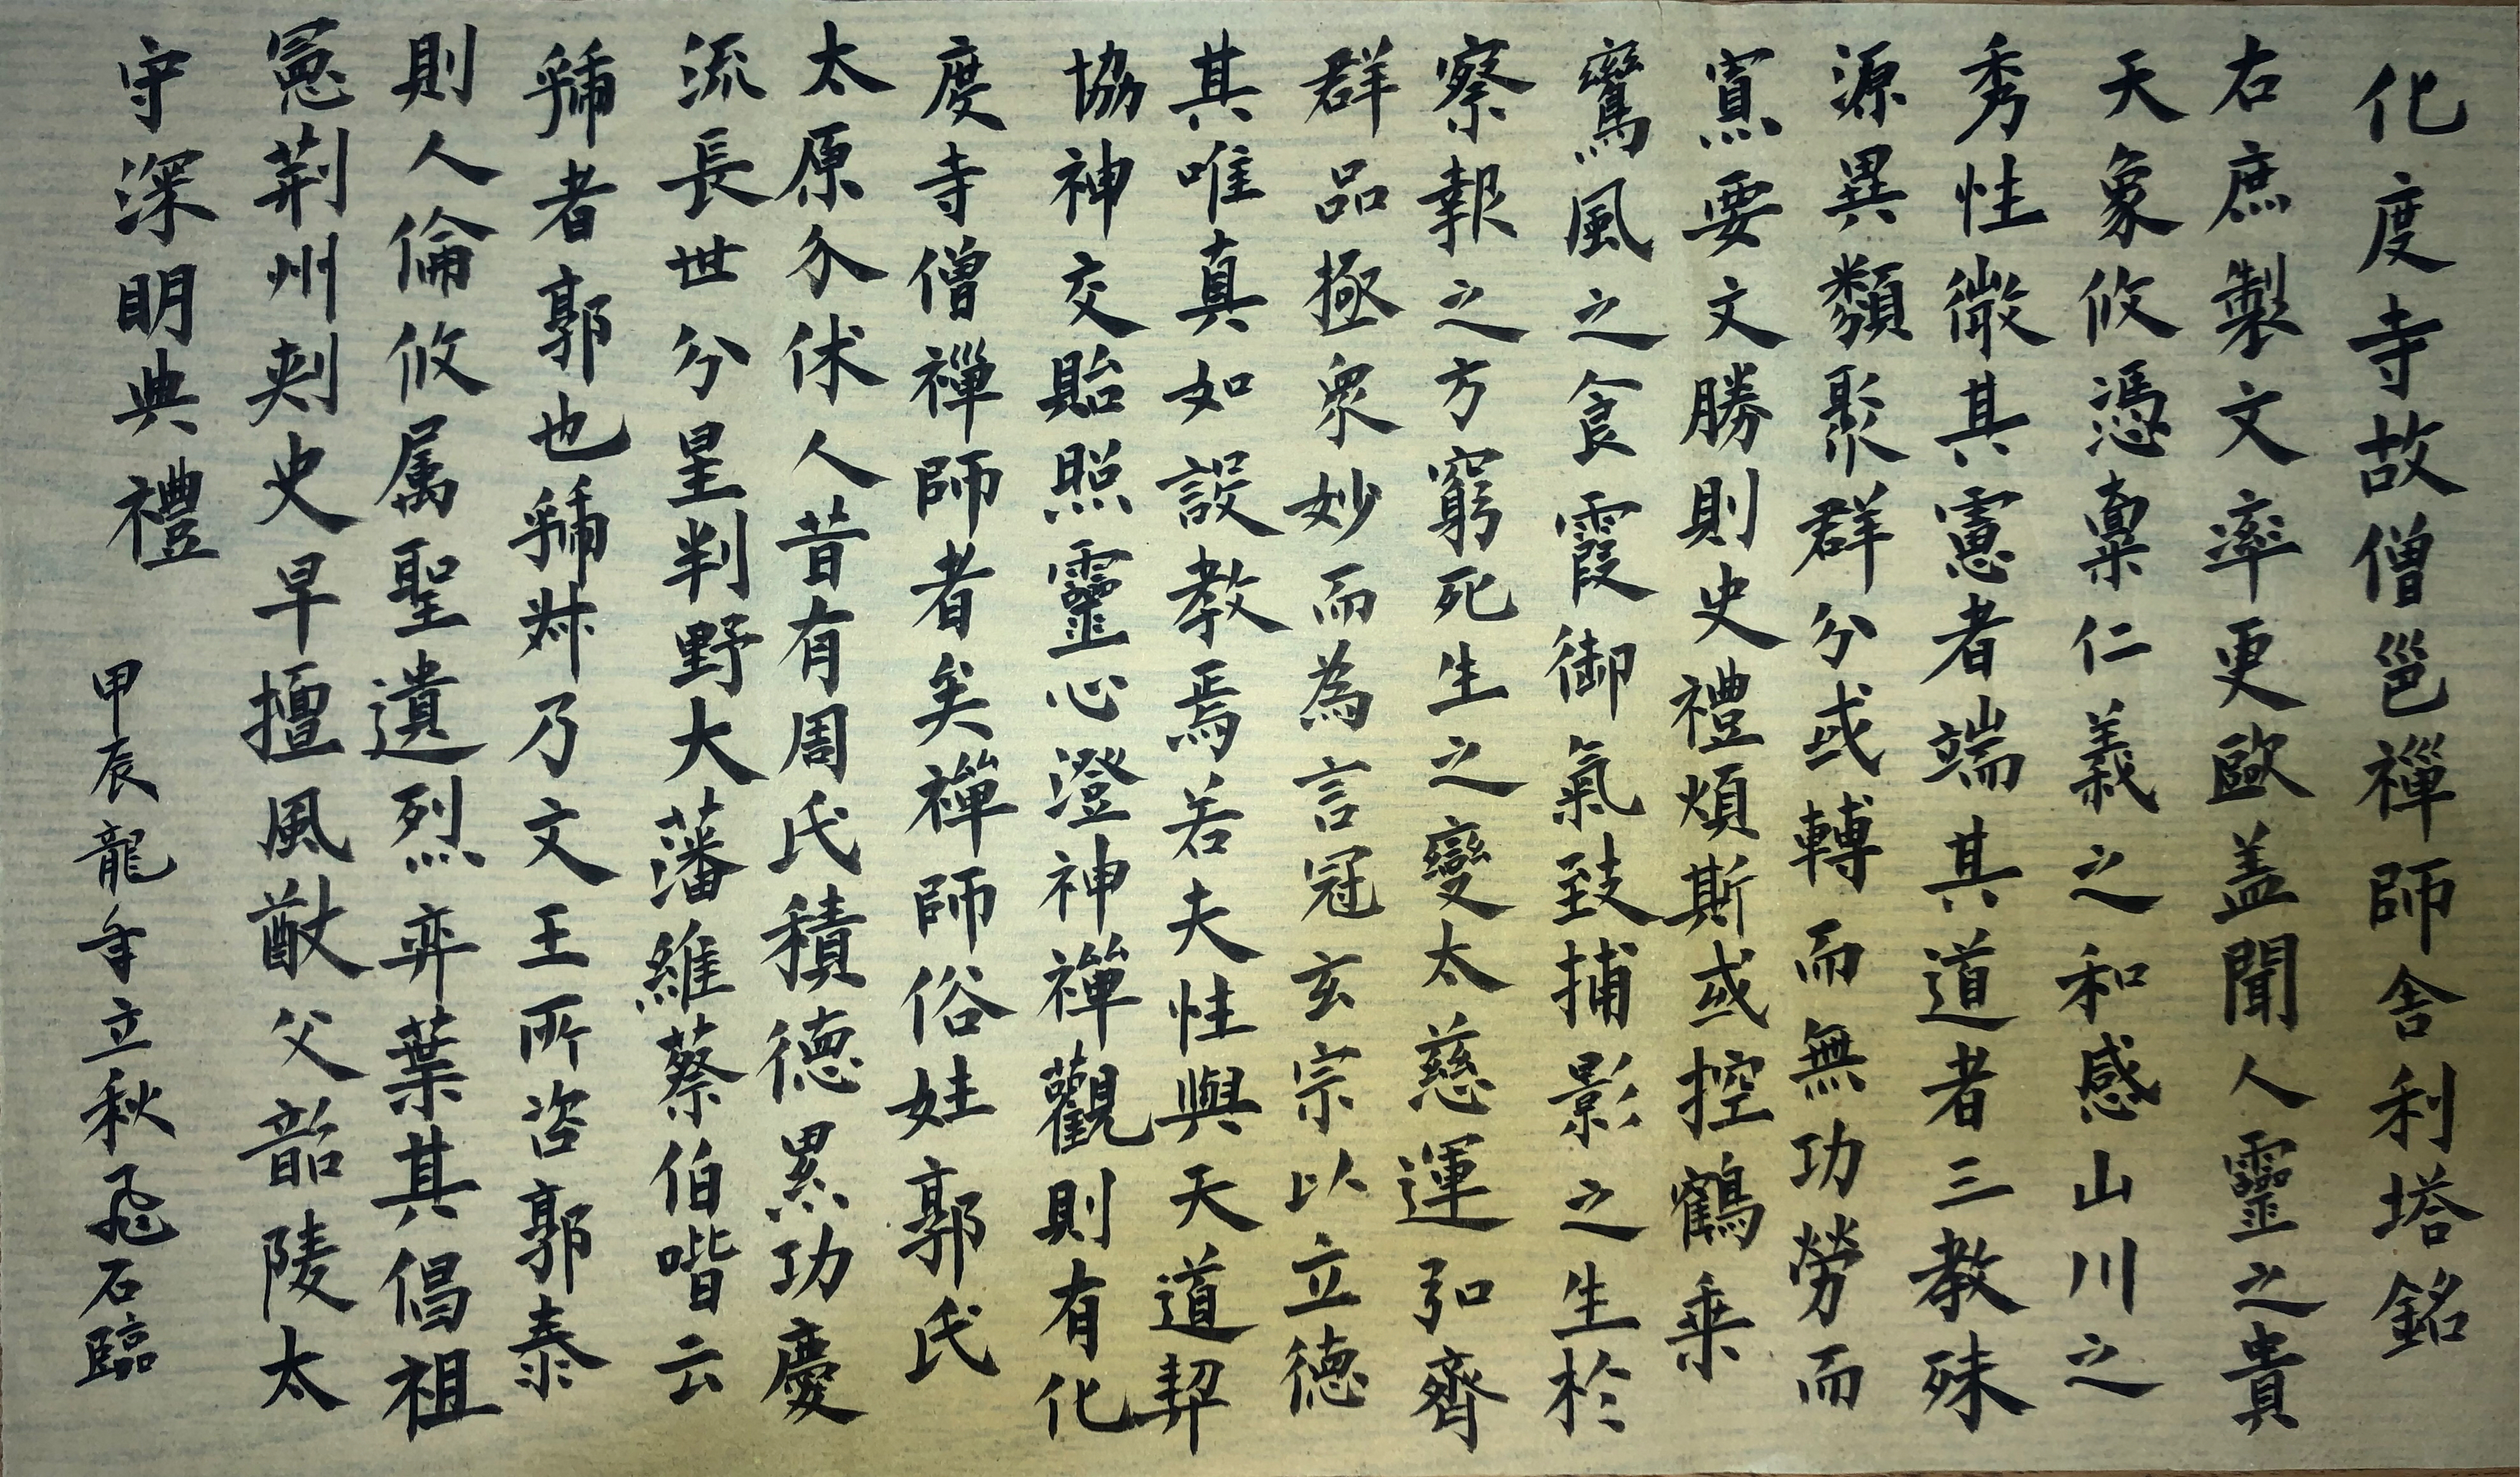 化度寺故僧邕禪師舍利塔銘
右庶製文率更歐盖聞人靈之貴
天象攸憑稟仁義之和感山川之
秀性徵其憲者端其道者三教殊
源異類聚群分或轉而無功勞而
寡要文勝則史禮煩斯或控鶴乗
鸞風之食霞御氣致捕影之生於
察報之方窮死生之變太慈運弘齊
群品極衆妙而為言冠玄宗以立德
其唯真如設教焉若夫性與天道契
協神交貽照靈心澄神禪觀則有化
度寺僧禪師者矣禪師俗姓郭氏
太原介休人昔有周氏積德累功慶
流長世分星判野大藩維蔡伯喈云
虢者郭也虢叔乃文王所咨郭泰
則人倫攸属聖遺烈弈葉其倡祖
憲荆州刺史早擅風猷父韶陵太
守深明典禮
甲辰龍年立秋飛石臨